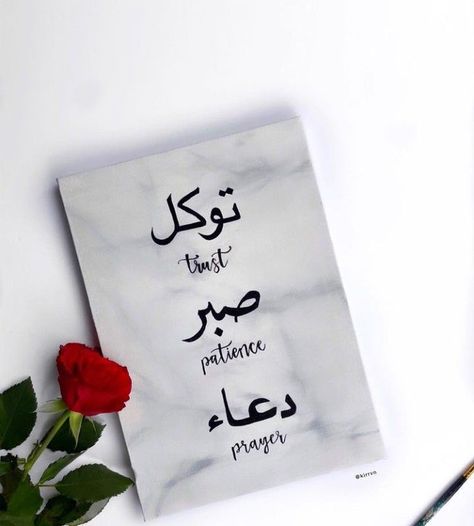 توكل
trust
صبر
patience
دعاء
prayer
@kirrin